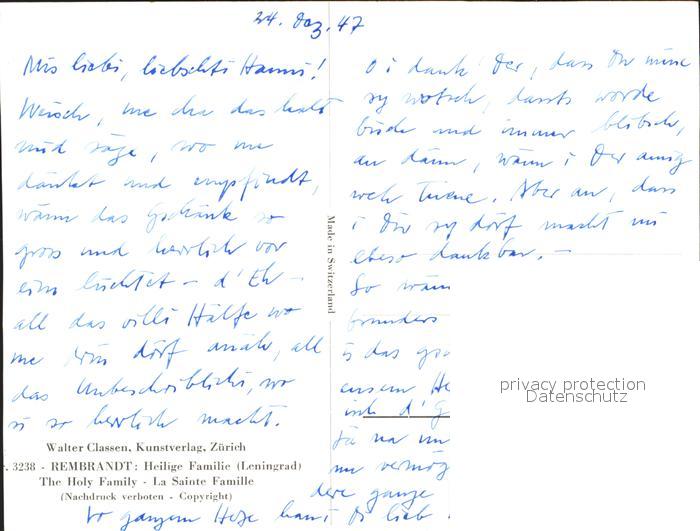 24. Dez. 47
Mis liebs, liebschts Hanni!
Weisch, me cha das halt
nid säge, wo me
dänkt und empfindt,
wänn das Gschänk so
gross und herrlich vor
eim lüchtet – d'Eh –
all das villi Hälfe wo
me drin dörf annäh, all
das Unbeschriblichi, wo
si so herrlich macht.
O i dank Der, dass Du mine
sy wotsch, dass worde
bisch und immer blibsch,
au dänn, wänn i Der amig
weh tuene. Aber au, dass
i Dir sy dörf macht mi
ebeso dankbar. –
So wänn
bsunders
is das gro
eusem He
ich d'G
Ja na im
mi vermög
dere ganze
Vo ganzem Herze han i Di lieb.
Made in Switzerland
Walter Classen, Kunstverlag, Zürich
. 3238 - REMBRANDT: Heilige Familie (Leningrad)
The Holy Family - La Sainte Famille
(Nachdruck verboten - Copyright)
privacy protection
Datenschutz